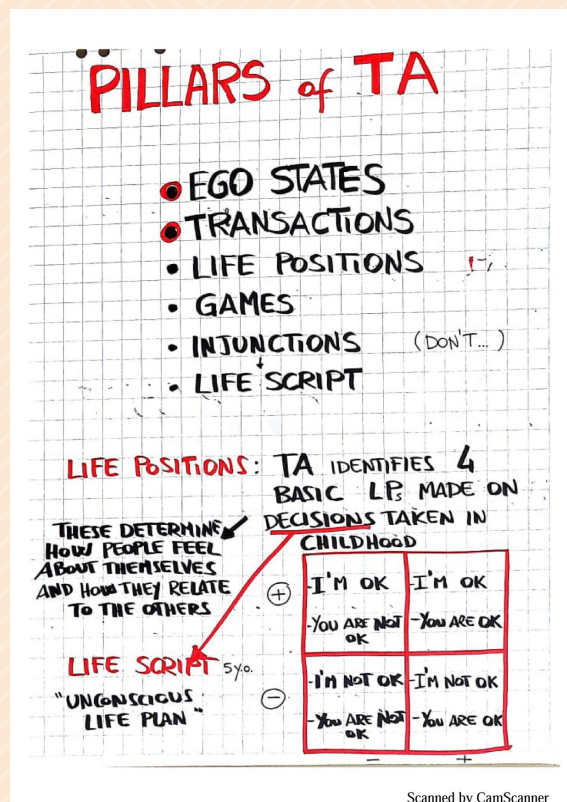 PILLARS of TA
• EGO STATES
• TRANSACTIONS
• LIFE POSITIONS
• GAMES
• INJUNCTIONS (DON'T...)
↓
• LIFE SCRIPT
LIFE POSITIONS: TA IDENTIFIES 4
BASIC LPs MADE ON
DECISIONS TAKEN IN
CHILDHOOD
THESE DETERMINE
HOW PEOPLE FEEL
ABOUT THEMSELVES
AND HOW THEY RELATE
TO THE OTHERS
LIFE SCRIPT 5 y.o.
"UNCONSCIOUS
LIFE PLAN"
+
-I'M OK
-YOU ARE NOT
OK
-I'M OK
-YOU ARE OK
-
-I'M NOT OK
-YOU ARE NOT
OK
-I'M NOT OK
-YOU ARE OK
- +
Scanned by CamScanner